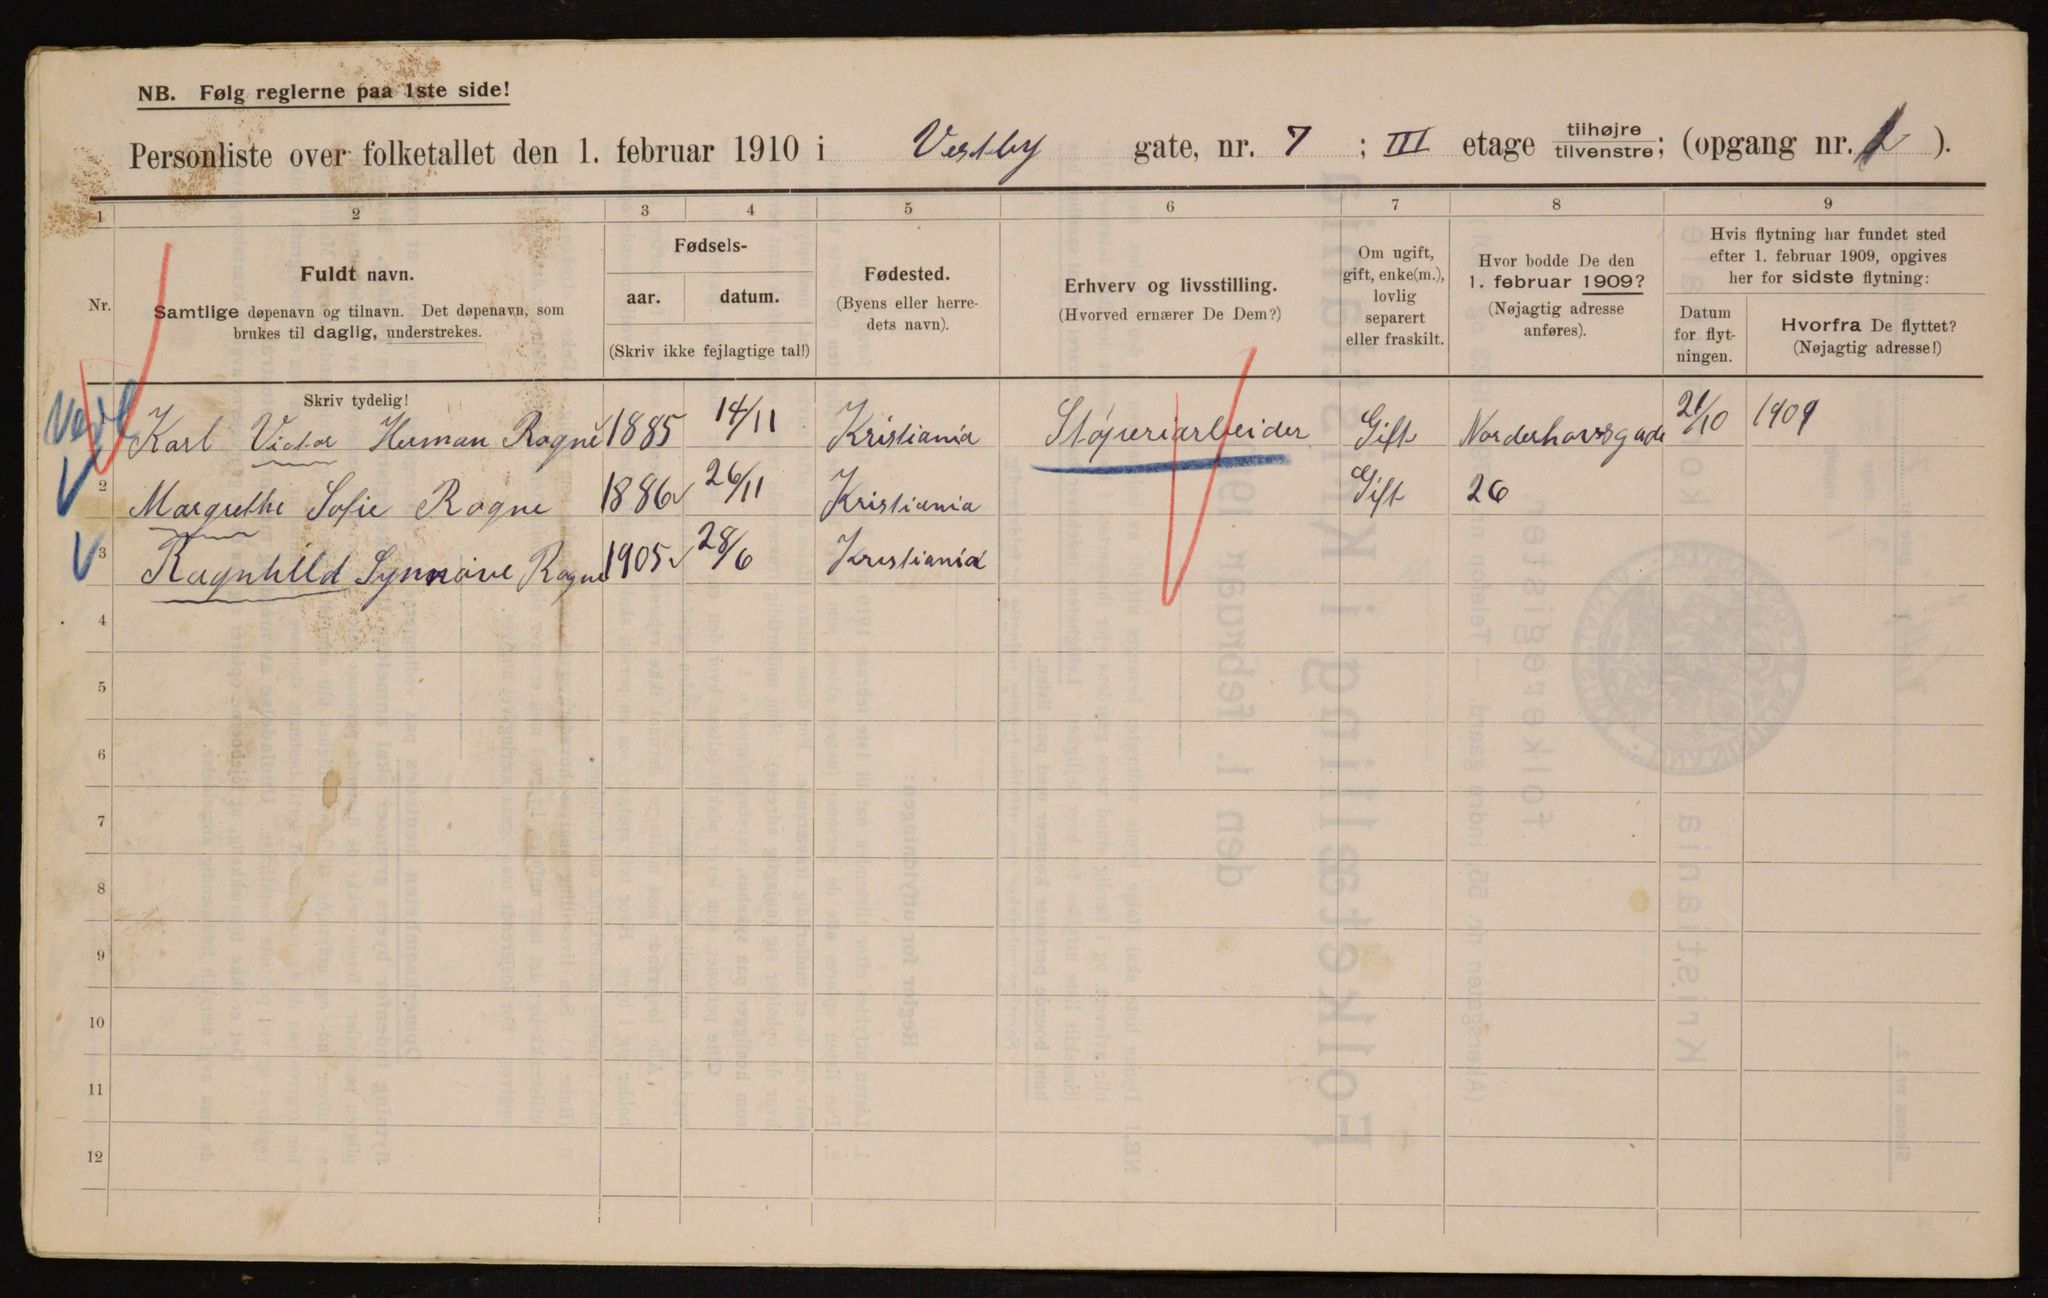 NB. Følg reglerne paa 1ste side!
Personliste over folketallet den 1. februar 1910 i Vestby gate, nr. 7; III etage tilhøjre tilvenstre; (opgang nr. ).
1 2 3 4 5 6 7 8 9
Nr.
Fuldt navn.
Samtlige døpenavn og tilnavn. Det døpenavn, som
brukes til daglig, understrekes.
Skriv tydelig!
Fødsels-
aar. datum.
(Skriv ikke fejlagtige tal!)
Fødested.
(Byens eller herre-
dets navn).
Erhverv og livsstilling.
(Hvorved ernærer De Dem?)
Om ugift,
gift, enke(m.),
lovlig
separert
eller fraskilt.
Hvor bodde De den
1. februar 1909?
(Nøjagtig adresse
anføres).
Hvis flytning har fundet sted
efter 1. februar 1909, opgives
her for sidste flytning:
Datum
for flyt-
ningen.
Hvorfra De flyttet?
(Nøjagtig adresse!)
Karl Victor Herman Rogne 1885 14/11 Kristiania Støperiarbeider Gift Norderhovsgade 21/10 1909
2 Margrethe Sofie Rogne 1886 26/11 Kristiania Gift 26
3 Ragnhild Synnøve Rogne 1905 28/6 Kristiania
4
5
6
7
8
9
10
11
12